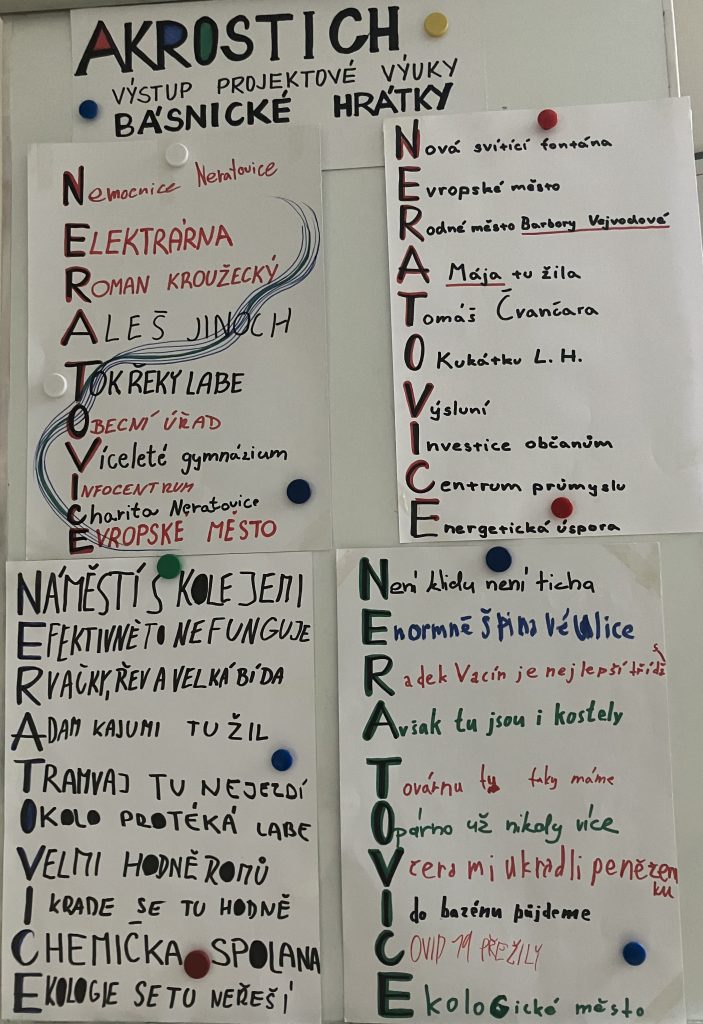 AKROSTICH
VÝSTUP PROJEKTOVÉ VÝUKY
BÁSNICKÉ HRÁTKY
Nemocnice Neratovice
ELEKTRÁRNA
ROMAN KROUŽECKÝ
ALEŠ JINOCH
TOK ŘEKY LABE
OBECNÍ ÚŘAD
Víceleté gymnázium
INFOCENTRUM
Charita Neratovice
EVROPSKE MĚSTO
Nová svítící fontána
Evropské město
Rodné město Barbory Vojvodové
A Mája tu žila
Tomáš Čvančara
O Kukátku L. H.
Výsluní
Investice občanům
Centrum průmyslu
Energetická úspora
NÁMĚSTÍ S KOLEJEMI
EFEKTIVNĚ TO NEFUNGUJE
RVAČKY, ŘEV A VELKÁ BÍDA
ADAM KAJUMI TU ŽIL
TRAMVAJ TU NEJEZDÍ
OKOLO PROTÉKÁ LABE
VELMI HODNĚ ROMŮ
I KRADE SE TU HODNĚ
CHEMIČKA SPOLANA
EKOLOGIE SE TU NEŘEŠÍ
Není klidu není ticha
Enormně špinavé ulice
Radek Vacín je nejlepší třídě
Avšak tu jsou i kostely
Továrnu tu taky máme
Opárno už nikoly více
Včera mi ukradli peněženku
I do bazénu půjdeme
COVID 19 PŘEŽILY
Ekologické město